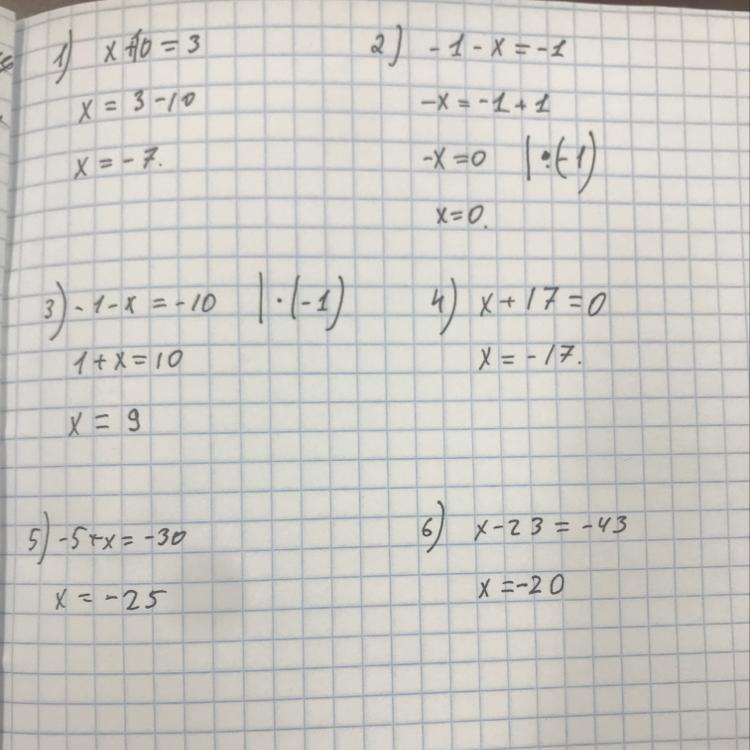 1) x+10 = 3
x = 3 - 10
x = - 7.
2) - 1 - x = - 1
-x = -1 + 1
-x = 0 | : (-1)
x = 0.
3) - 1 - x = - 10 | · (-1)
1 + x = 10
x = 9
4) x + 17 = 0
x = - 17.
5) -5 + x = -30
x = - 25
6) x - 23 = - 43
x = -20